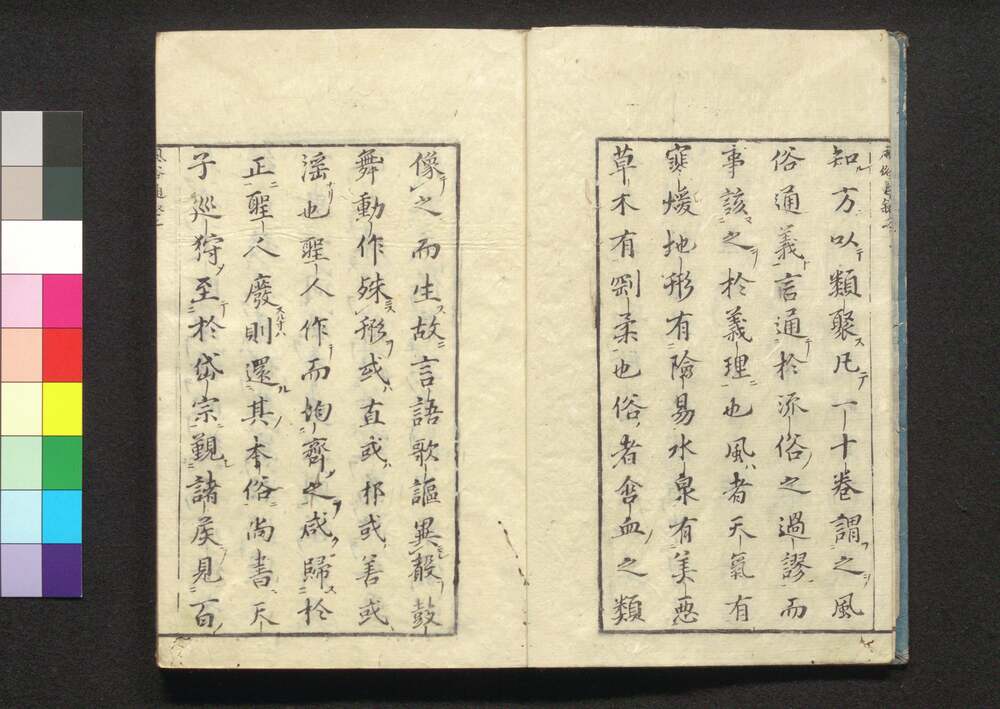 知方以類聚凡一十卷謂之風
俗通義言通於流俗之過謬而
事該之於義理也風者天氣有
寒煖地形有險易水泉有美惡
草木有剛柔也俗者含血之類
像之而生故言語歌謳異聲鼓
舞動作殊形或直或邪或善或
淫也聖人作而均齊之咸歸於
正聖人廢則還其本俗尚書天
子巡狩至於岱宗覲諸侯見百